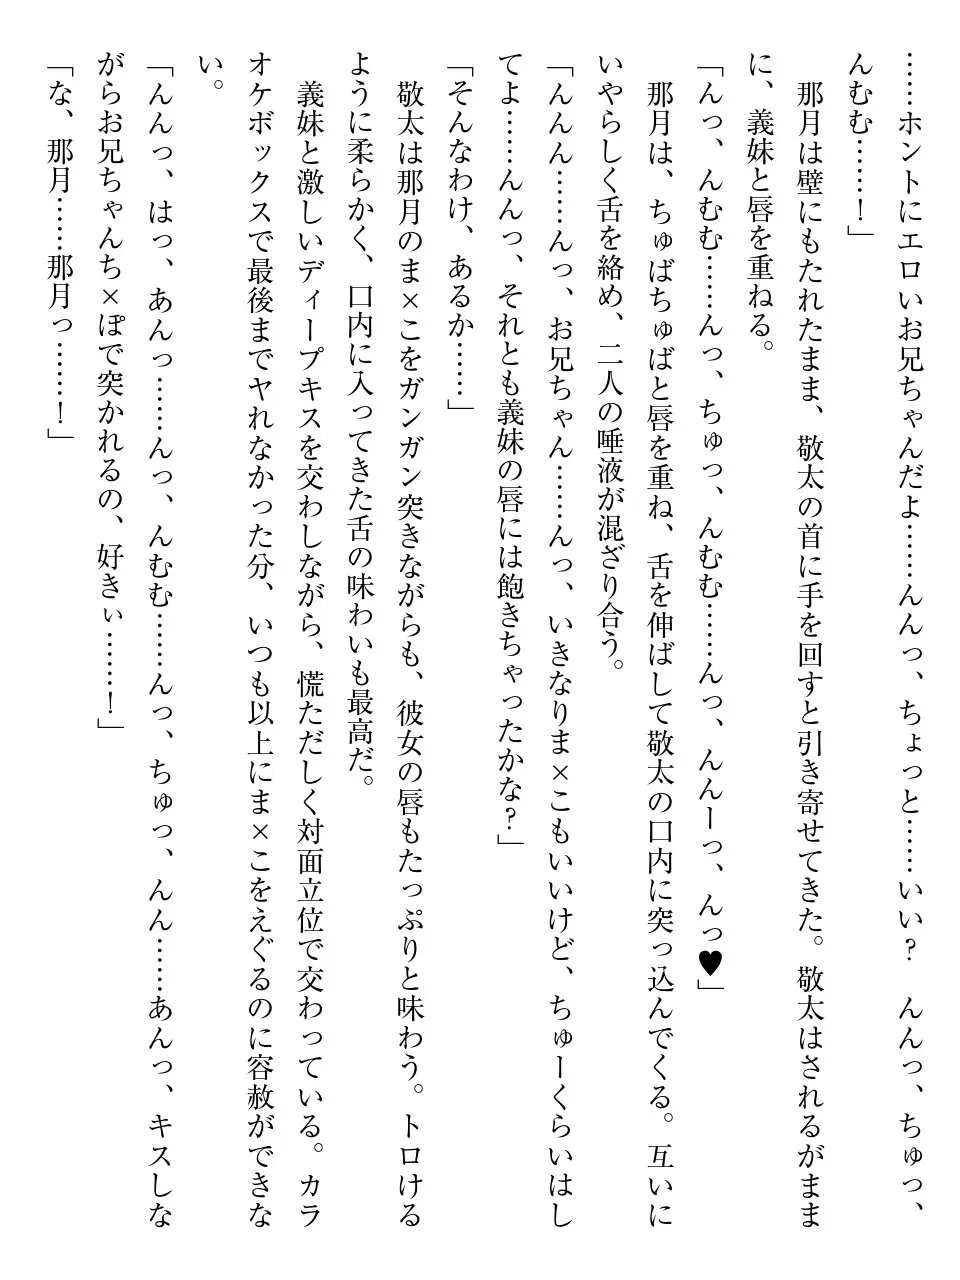 ……ホントにエロいお兄ちゃんだよ……んんっ、ちょっと……いい？　んんっ、ちゅっ、
んむむ……！」
　那月は壁にもたれたまま、敬太の首に手を回すと引き寄せてきた。敬太はされるがまま
に、義妹と唇を重ねる。
「んっ、んむむ……んっ、ちゅっ、んむむ……んっ、んんーっ、んっ♥」
　那月は、ちゅばちゅばと唇を重ね、舌を伸ばして敬太の口内に突っ込んでくる。互いに
いやらしく舌を絡め、二人の唾液が混ざり合う。
「んんん……んっ、お兄ちゃん……んっ、いきなりま×こもいいけど、ちゅーくらいはし
てよ……んんっ、それとも義妹の唇には飽きちゃったかな？」
「そんなわけ、あるか……」
　敬太は那月のま×こをガンガン突きながらも、彼女の唇もたっぷりと味わう。トロける
ように柔らかく、口内に入ってきた舌の味わいも最高だ。
　義妹と激しいディープキスを交わしながら、慌ただしく対面立位で交わっている。カラ
オケボックスで最後までヤれなかった分、いつも以上にま×こをえぐるのに容赦ができな
い。
「んんっ、はっ、あんっ……んっ、んむむ……んっ、ちゅっ、んん……あんっ、キスしな
がらお兄ちゃんち×ぽで突かれるの、好きぃ……！」
「な、那月……那月っ……！」